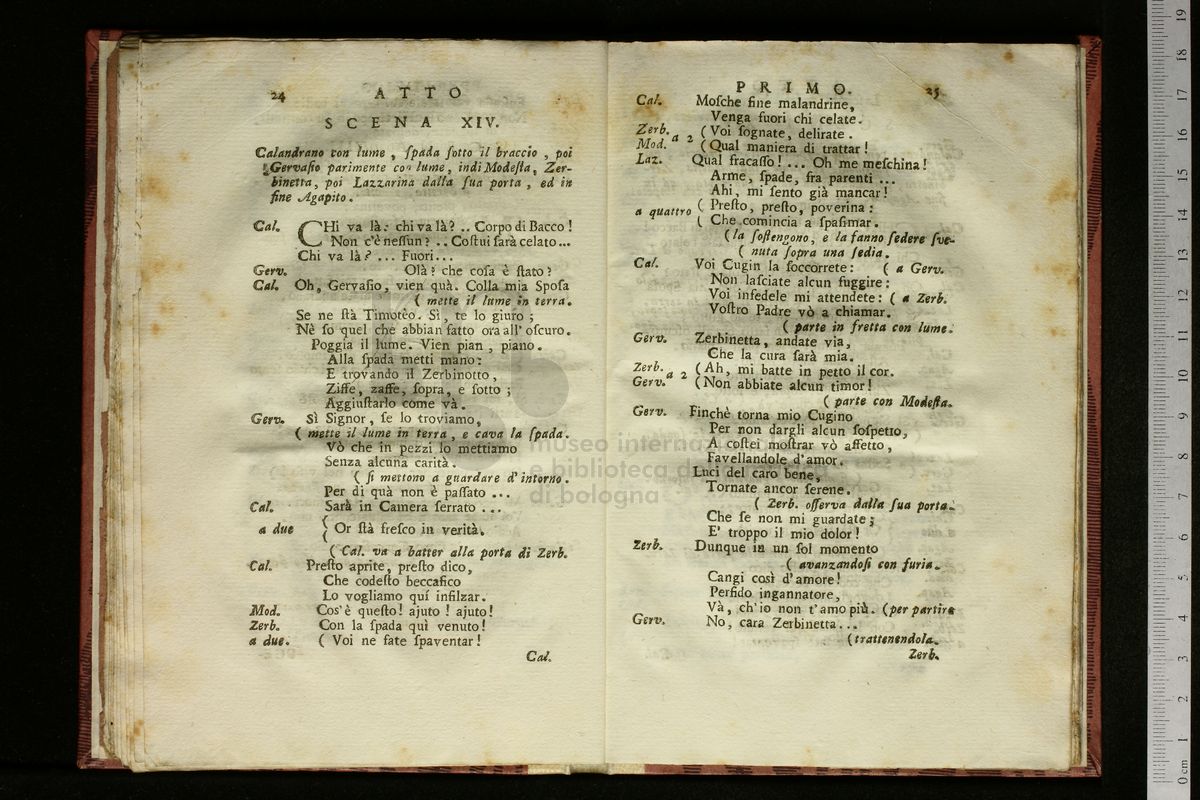 24 ATTO
SCENA XIV.
Calandrano con lume, ſpada ſotto il braccio, poi
Gervaſio parimente con lume, indi Modeſta, Zer-
binetta, poi Lazzarina dalla ſua porta, ed in
fine Agapito.
Cal. CHi va là: chi va là? .. Corpo di Bacco!
Non c'è neſſun? .. Coſtui ſarà celato...
Chi va là? ... Fuori...
Gerv. Olà? che coſa è ſtato?
Cal. Oh, Gervaſio, vien quà. Colla mia Spoſa
( mette il lume in terra.
Se ne ſtà Timotèo. Sì, te lo giuro;
Nè ſo quel che abbian fatto ora all' oſcuro.
Poggia il lume. Vien pian, piano.
Alla ſpada metti mano:
E trovando il Zerbinotto,
Ziffe, zaffe, ſopra, e ſotto;
Aggiuſtarlo come và.
Gerv. Sì Signor, ſe lo troviamo,
( mette il lume in terra, e cava la ſpada.
Vò che in pezzi lo mettiamo
Senza alcuna carità.
( ſi mettono a guardare d'intorno.
Per di quà non è paſſato ...
Cal. Sarà in Camera ſerrato ...
a due { Or ſtà freſco in verità.
( Cal. va a batter alla porta di Zerb.
Cal. Preſto aprite, preſto dico,
Che codeſto beccafico
Lo vogliamo quí infilzar.
Mod. Cos'è queſto! ajuto! ajuto!
Zerb. Con la ſpada quì venuto!
a due. ( Voi ne fate ſpaventar!
Cal.
PRIMO. 25
Cal. Moſche fine malandrine,
Venga fuori chi celate.
Zerb. a 2 ( Voi ſognate, delirate.
Mod. ( Qual maniera di trattar!
Laz. Qual fracaſſo! ... Oh me meſchina!
Arme, ſpade, fra parenti ...
Ahi, mi ſento già mancar!
a quattro ( Preſto, preſto, poverina:
( Che comincia a ſpaſimar.
( la ſoſtengono, e la fanno ſedere ſve-
( nuta ſopra una ſedia.
Cal. Voi Cugin la ſoccorrete: ( a Gerv.
Non laſciate alcun fuggire:
Voi infedele mi attendete: ( a Zerb.
Voſtro Padre vò a chiamar.
( parte in fretta con lume.
Gerv. Zerbinetta, andate via,
Che la cura ſarà mia.
Zerb. a 2 ( Ah, mi batte in petto il cor.
Gerv. ( Non abbiate alcun timor!
( parte con Modeſta.
Gerv. Finchè torna mio Cugino
Per non dargli alcun ſoſpetto,
A coſtei moſtrar vò affetto,
Favellandole d'amor.
Luci del caro bene,
Tornate ancor ſerene.
( Zerb. oſſerva dalla ſua porta.
Che ſe non mi guardate;
E' troppo il mio dolor!
Zerb. Dunque in un ſol momento
( avanzandoſi con furia.
Cangi così d'amore!
Perfido ingannatore,
Và, ch'io non t'amo più. (per partire
Gerv. No, cara Zerbinetta...
(trattenendola.
Zerb.
museo internaz
e biblioteca d
di bologna
0 cm 1 2 3 4 5 6 7 8 9 10 11 12 13 14 15 16 17 18 19